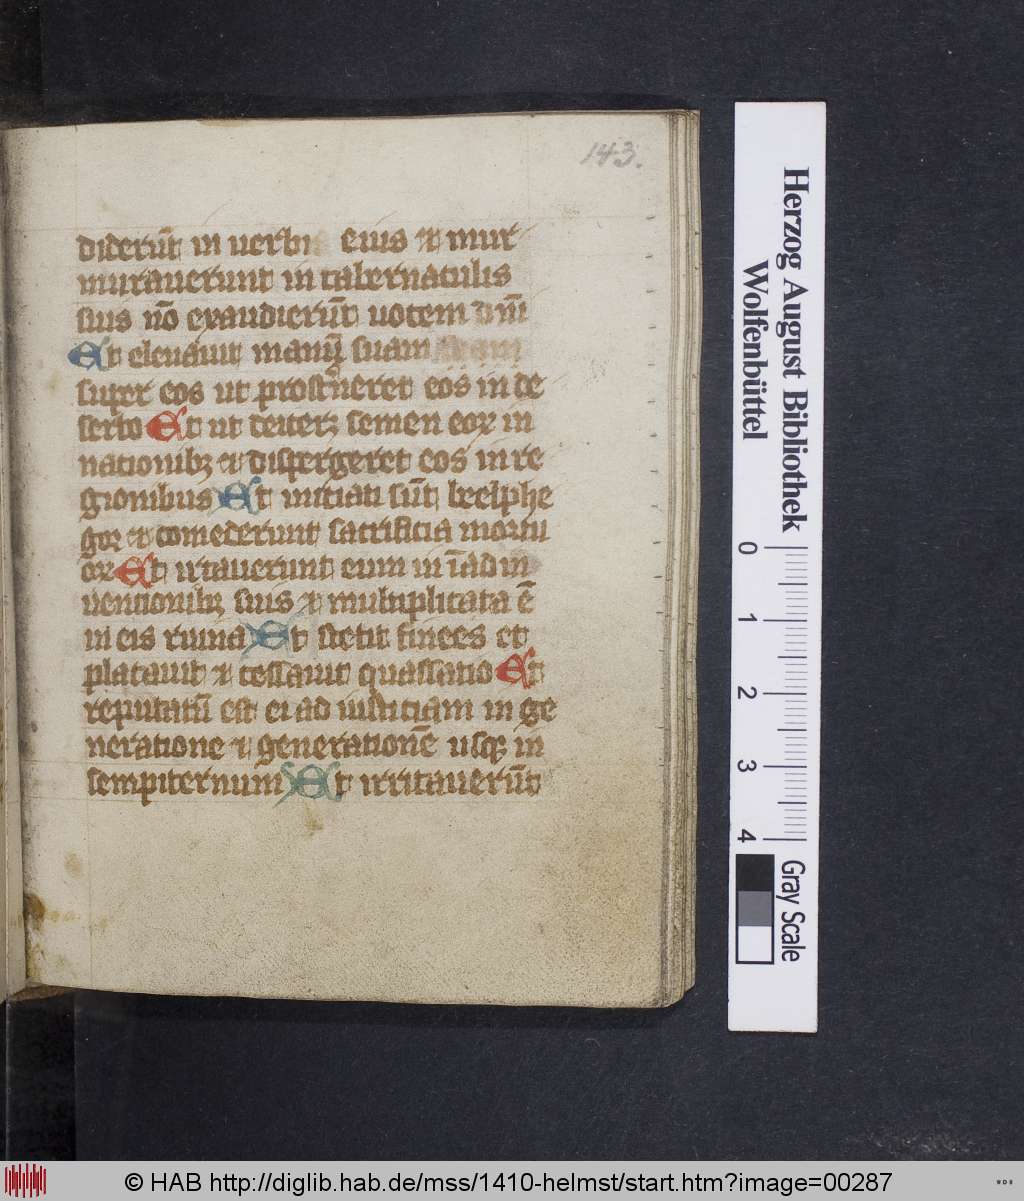 143.
diderūt in uerbis eius ⁊ mur
murauerunt in tabernaculis
suis nō exaudierūt uocem dn̄i
Et eleuauit manū suam
super eos ut prost̄neret eos in de
serto Et ut deiceꝫ semen eoꝝ in
nationibꝫ ⁊ dispergeret eos in re
gionibus Et initiati sūt beelphe
gor ⁊ comederunt sacrificia mortu
oꝝ Et irtauerunt eum in īad in
uentionibꝫ suis ⁊ multiplicata ē
in eis ruina Et stetit finees et
placauit ⁊ cessauit quassatio Et
reputatū est ei ad iusticiam in ge
neratione ⁊ generationē usqꝫ in
sempiternum Et irritauerūt
Herzog August Bibliothek
Wolfenbüttel
0 1 2 3 4
Gray Scale
© HAB http://diglib.hab.de/mss/1410-helmst/start.htm?image=00287